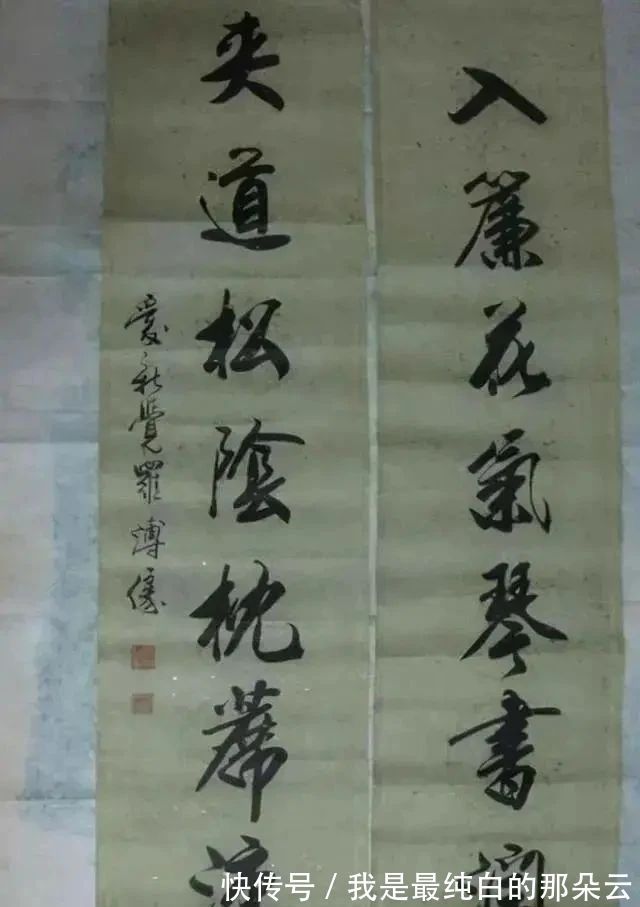 入簾花氣琴書潤
夾道松陰枕蓆涼
愛新覺羅溥儀
快传号 / 我是最纯白的那朵云